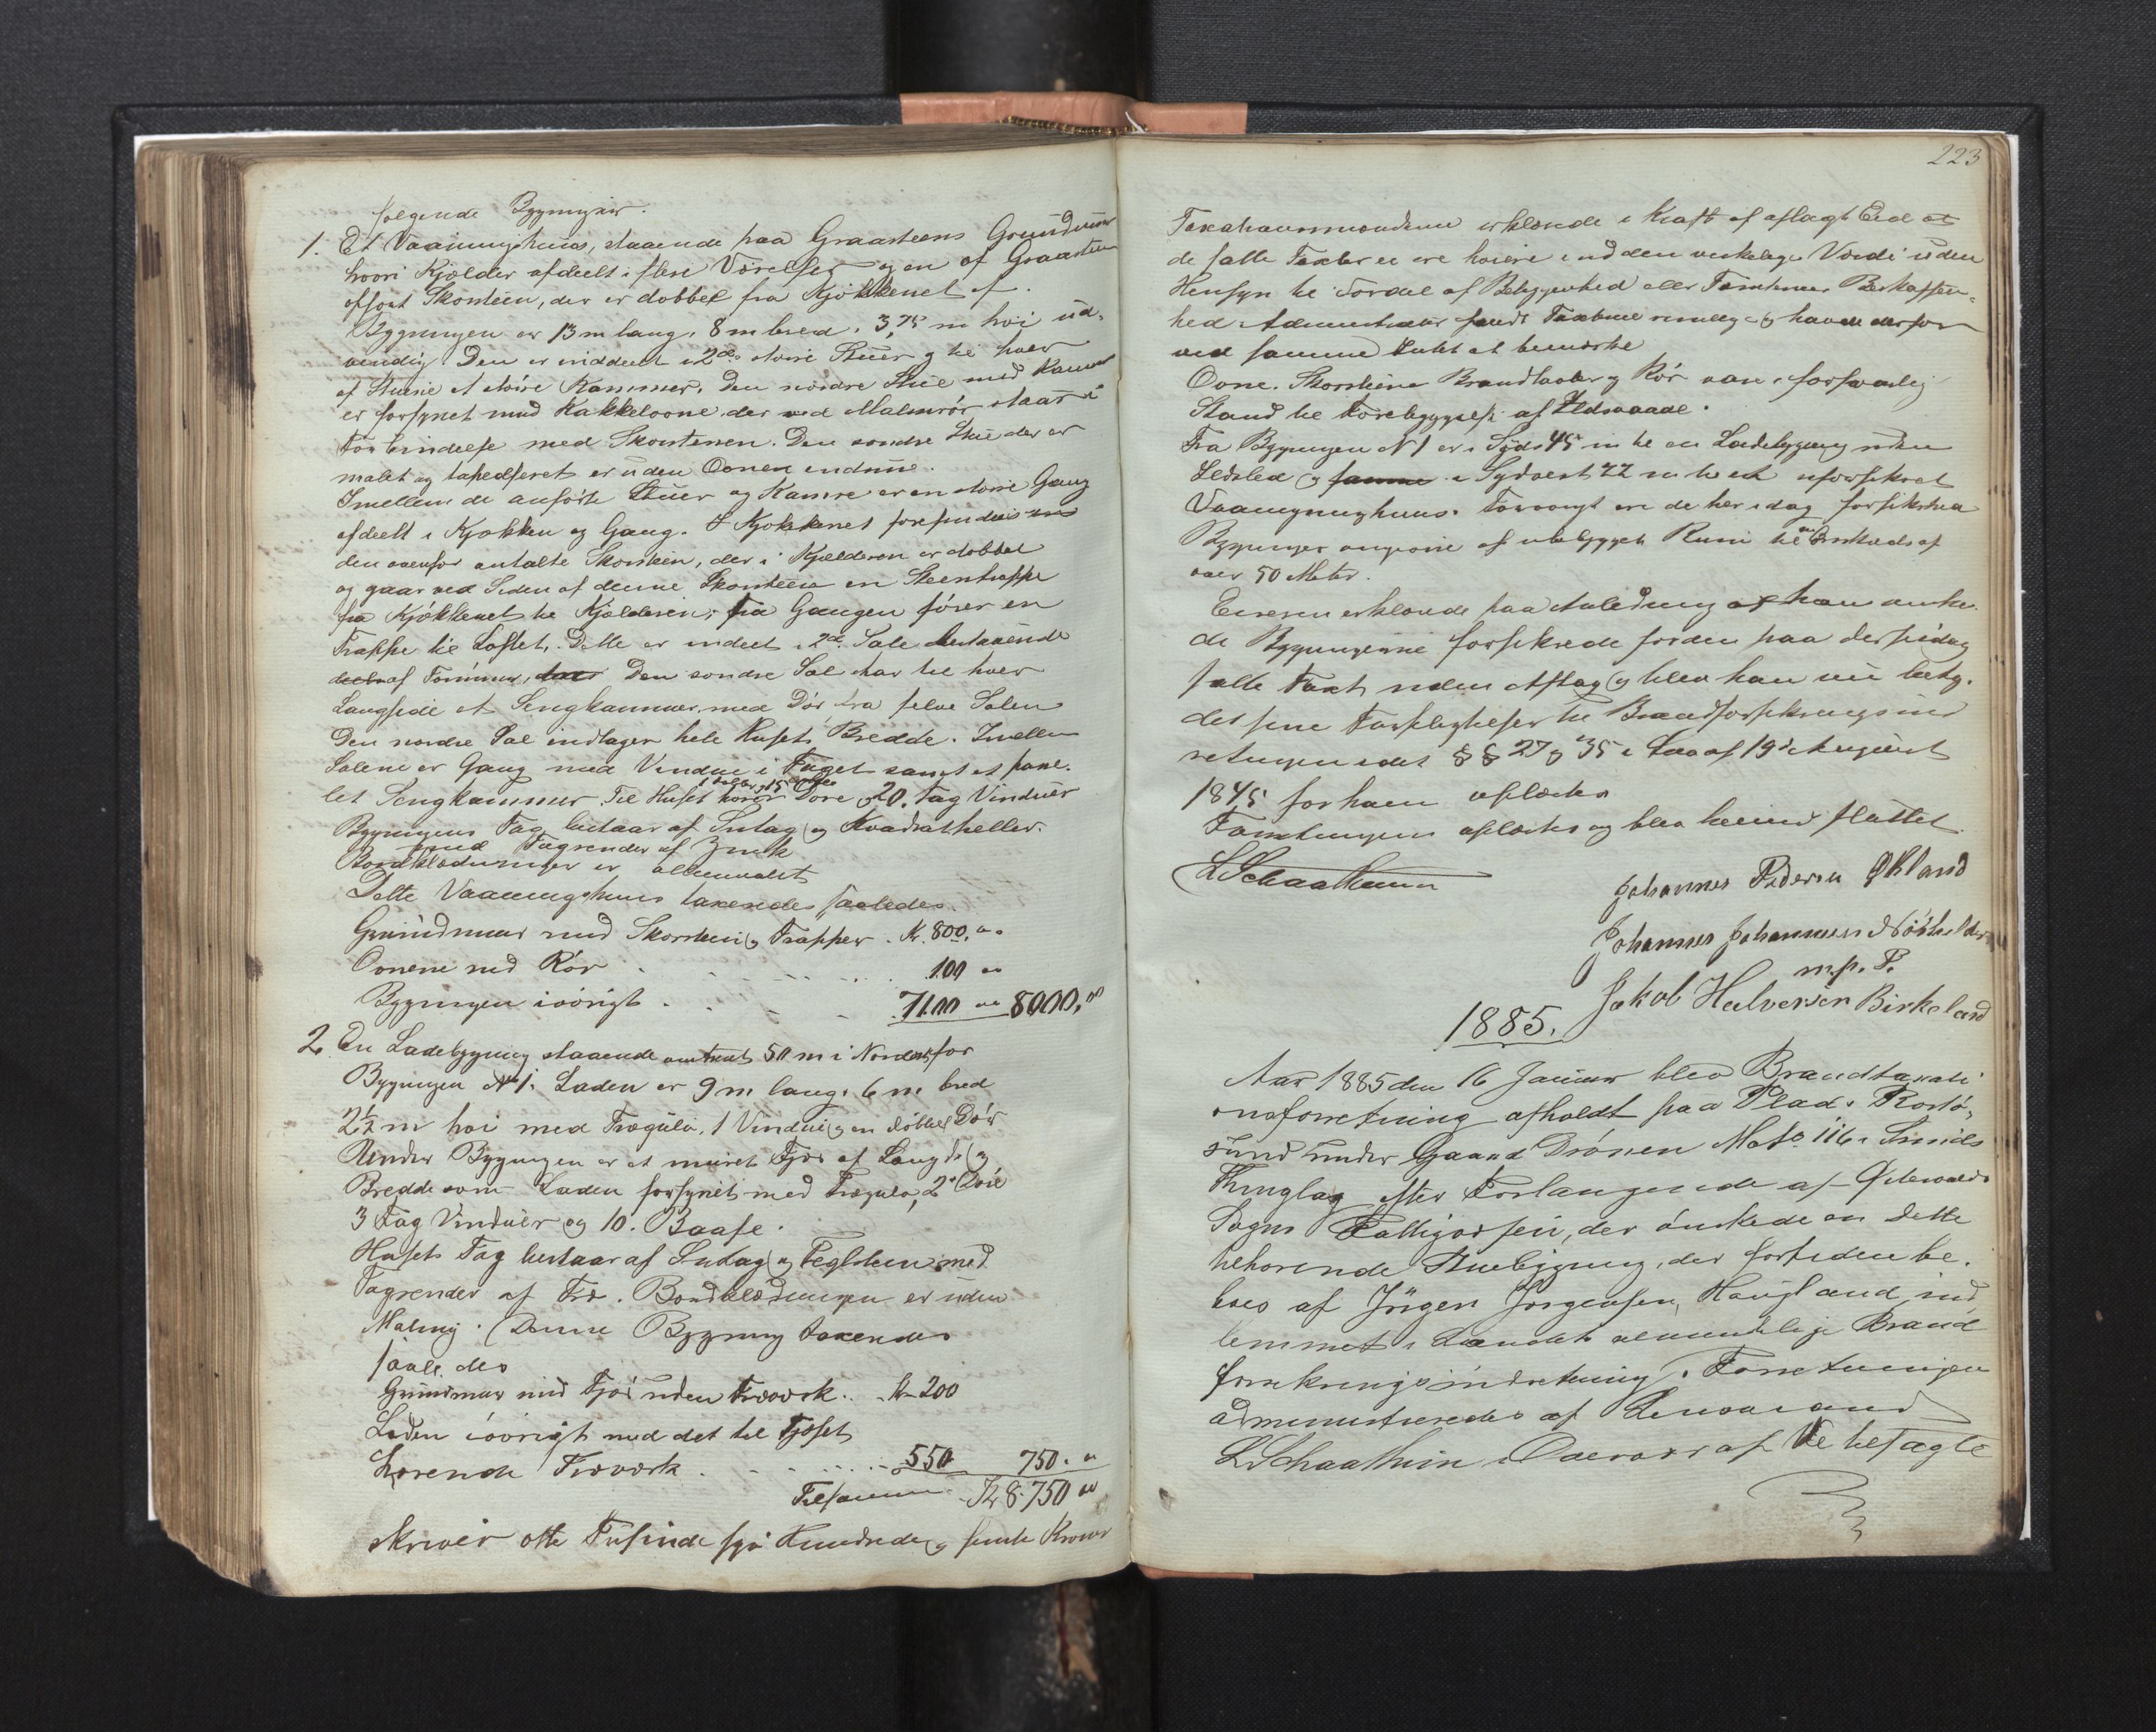 følgende Bygninger.
1. Et Vaaningshuus, staaende paa Graasteens Grundmuur
hvori Kjælder afdeelt i flere Værelser og en af Graasteen
opført Skorsteen, der er dobbel fra Kjøkkenet af.
Bygningen er 13 m lang, 8 m bred, 3,75 m høi ud-
vendig. Den er inddeelt i 2de större Stuer og til hver
af Stuene et större Kammer. Den nordre Stue med Kammer
er forsynet med Kakkelovne, der ved Malmrör staar i
Forbindelse med Skorstenen. Den søndre Stue der er
malet og tapedseret er uden Ovnen endnu.
Imellem de anförte Stuer og Kamre er en större Gang
afdeelt i Kjøkken og Gang. I Kjøkkenet forefindes
den ovenfor omtalte Skorsteen, der i Kjælderen er dobbel
og gaar ved Siden af denne Skorsteen en Steentrappe
fra Kjökkenet til Kjælderen; fra Gangen förer en
Trappe til Loftet. Dette er inddeelt i 2de Sale bestaaende
af Tömmer, Den søndre Sal har til hver
Langside et Sengkammer med Dör fra selve Salen
Den nordre Sal indtager hele Husets Bredde. Imellem
Salene er Gang med Vindue i Taget samt et pane-
let Sengkammer. Til Huset hörer 1 dobbel og 15 enkle Döre og 20 Fag Vinduer
Bygningens Tag bestaar af Sutag og Kvadratheller.
med Tagrender af Zink
Bordklædningen er oliemalet
Dette Vaaningshuus taxeredes saaledes.
Grundmuur med Skorsteen og Trapper . Kr. 800. "
Ovnene med Rör . . . . . 100 "
Bygningen iövrigt . . . 7100 " 8000. "
2. En Ladebygning staaende omtrent 50 m i Nordost for
Bygningen No 1. Laden er 9 m lang, 6 m bred
2½ m høi med Trægulv, 1 Vindue og en dobbel Dör
Under Bygningen er et muret Fjös af Længde og
Bredde som Laden forsynet med Trægulv, 2de Döre
3 Fag Vinduer og 10. Baase.
Husets Tag bestaar af Sutag og Teglsteen med
Tagrender af Træ. Bordklædningen er uden
Maling. Denne Bygning taxeredes
saaledes
Grundmuur med Fjös uden Træværk . . Kr 200
Laden iövrigt med det til Fjöset
hörende Træværk . . . . . 550 750. "
Tilsammen Kr 8.750 "
skriver otte Tusinde syv Hundrede og femti Kroner
223
Taxationsmændene erklærede i Kraft af aflagt Eed at
de satte Taxter ei ere höiere end den virkelige Værdi uden
Hensyn til Fordel af Beliggenhed eller Tomternes Beskaffen-
hed. Administrator fandt Taxterne rimelige og havde derfor
ved samme Intet at bemærke
Ovne, Skorstene Brandhaver og Rör var i forsvarlig
Stand til Forebyggelse af Ildsvaade.
Fra Bygningen N 1 er i Syd 45 m til en Ladebygning uden
Ildsted og i Sydvest 22 m til et uforsikret
Vaaningshuus. Forövrigt ere de her idag forsikrede
Bygninger omgivne af ubebygget Rum til en Omkreds af
over 50 Meter.
Eieren erklærede paa Anledning at han önske-
de Bygningerne forsikrede for den paa dersteds idag
satte Taxt uden Afslag og blev han nu betyd-
det sine Forpligtelser til Brandforsikringsind-
retningen idet §§ 27 og 35 i Lov af 19de August
1845 for ham oplæstes
Forretningen oplæstes og blev hermed sluttet.
L Schaathun
Johannes Pedersen Økland
Johannes Johannesen
m.p. P.
Jakob Halversen Birkeland
1885.
Aar 1885 den 16 Januar blev Brandtaxati-
onsforretning afholdt paa Plads Rostö-
sund under Gaard Drönen Mat. No 116 i Sunds
Thinglag efter Forlangende af
Sogns Fattigvæsen, der önskede en dette
tilhörende Stuebygning, der fortiden be-
boes af Jörgen Jörgensen Haugland, ind-
lemmet i Landets almindelige Brand
forsikringsindretning. Forretningen
administreredes af Lensmand
L Schaathun i Overvær af de tiltagte